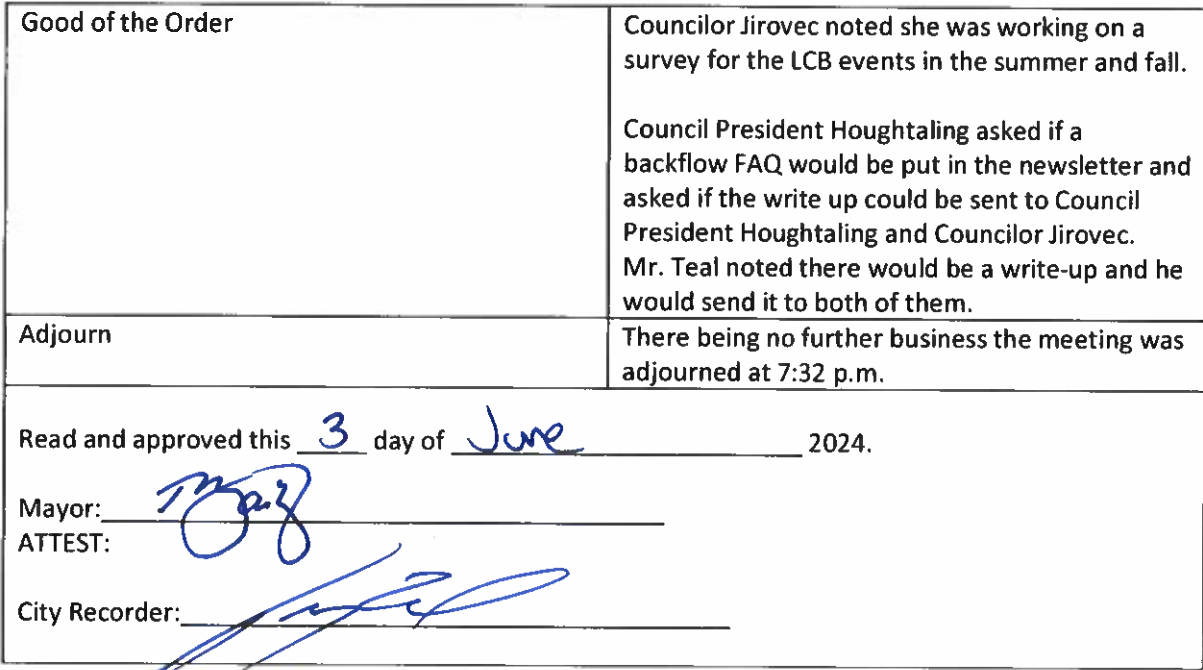 Good of the Order
Councilor Jirovec noted she was working on a
survey for the LCB events in the summer and fall.
Council President Houghtaling asked if a
backflow FAQ would be put in the newsletter and
asked if the write up could be sent to Council
President Houghtaling and Councilor Jirovec.
Mr. Teal noted there would be a write-up and he
would send it to both of them.
Adjourn
There being no further business the meeting was
adjourned at 7:32 p.m.
Read and approved this 3 day of June 2024.
Mayor:
ATTEST:
City Recorder: